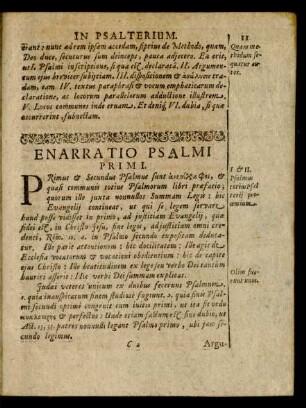 IN PSALTERIUM.
11
erant: nunc ad rem ipsam accedam, si prius de Methodo, quam,
Deo duce, secuturus sum deinceps, pauca adjecero. Ea erit,
ut I. Psalmi inscriptione, si qua est, declaratâ, II. Argumen-
tum ejus breviter subjiciam. III. dispositionem &
dam, eam IV. textus paraphrasi & vocum emphaticarum de-
claratione, ac locorum parallelorum additione illustrem.
V. Locos communes inde eruam. Et deniq; VI. dubia, si quæ
occurrerint, subnectam.
Quam me-
thodum se-
quatur au-
tor.
ENARRATIO PSALMI
PRIMI.
PRimus & Secundus Psalmus sunt &
quasi communis totius Psalmorum libri præfatio;
quorum ille juxta nonnullos Summam Legis: hic
Evangelij contineat, ut qui se legem servare
haud posse vidisset in primo, ad justitiam Evangelij, quæ
fidei est, in Christo Jesu, fine legis, ad justitiam omni cre-
denti, Rom. 10. 4. in Psalmo secundo expositam deduca-
tur. Ille parit attentionem: hic docilitatem: Ille agit de
Ecclesia vocatorum & vocationi obedientium: hic de capite
ejus Christo: Ille beatitudinem ex lege seu verbo Dei tantum
hauriri asserit: Hic verbi Dei summam explicat.
I & II.
Psalmus
totius Psal-
terij pro-
œmium.
Judæi veteres unicum ex duobus fecerunt Psalmum,
quia inusitatum finem secundi fugiunt. 2. quia finis Psal-
mi secundi optimè congruit cum initio primi, ut ita sit velu
& perfectus: Unde etiam factum est, sine dubio, ut
Act. 13, 33. patres nonnulli legant Psalmo primo, ubi jam se-
cundo legimus.
Olim fue-
runt unus.
C 2
Argu-